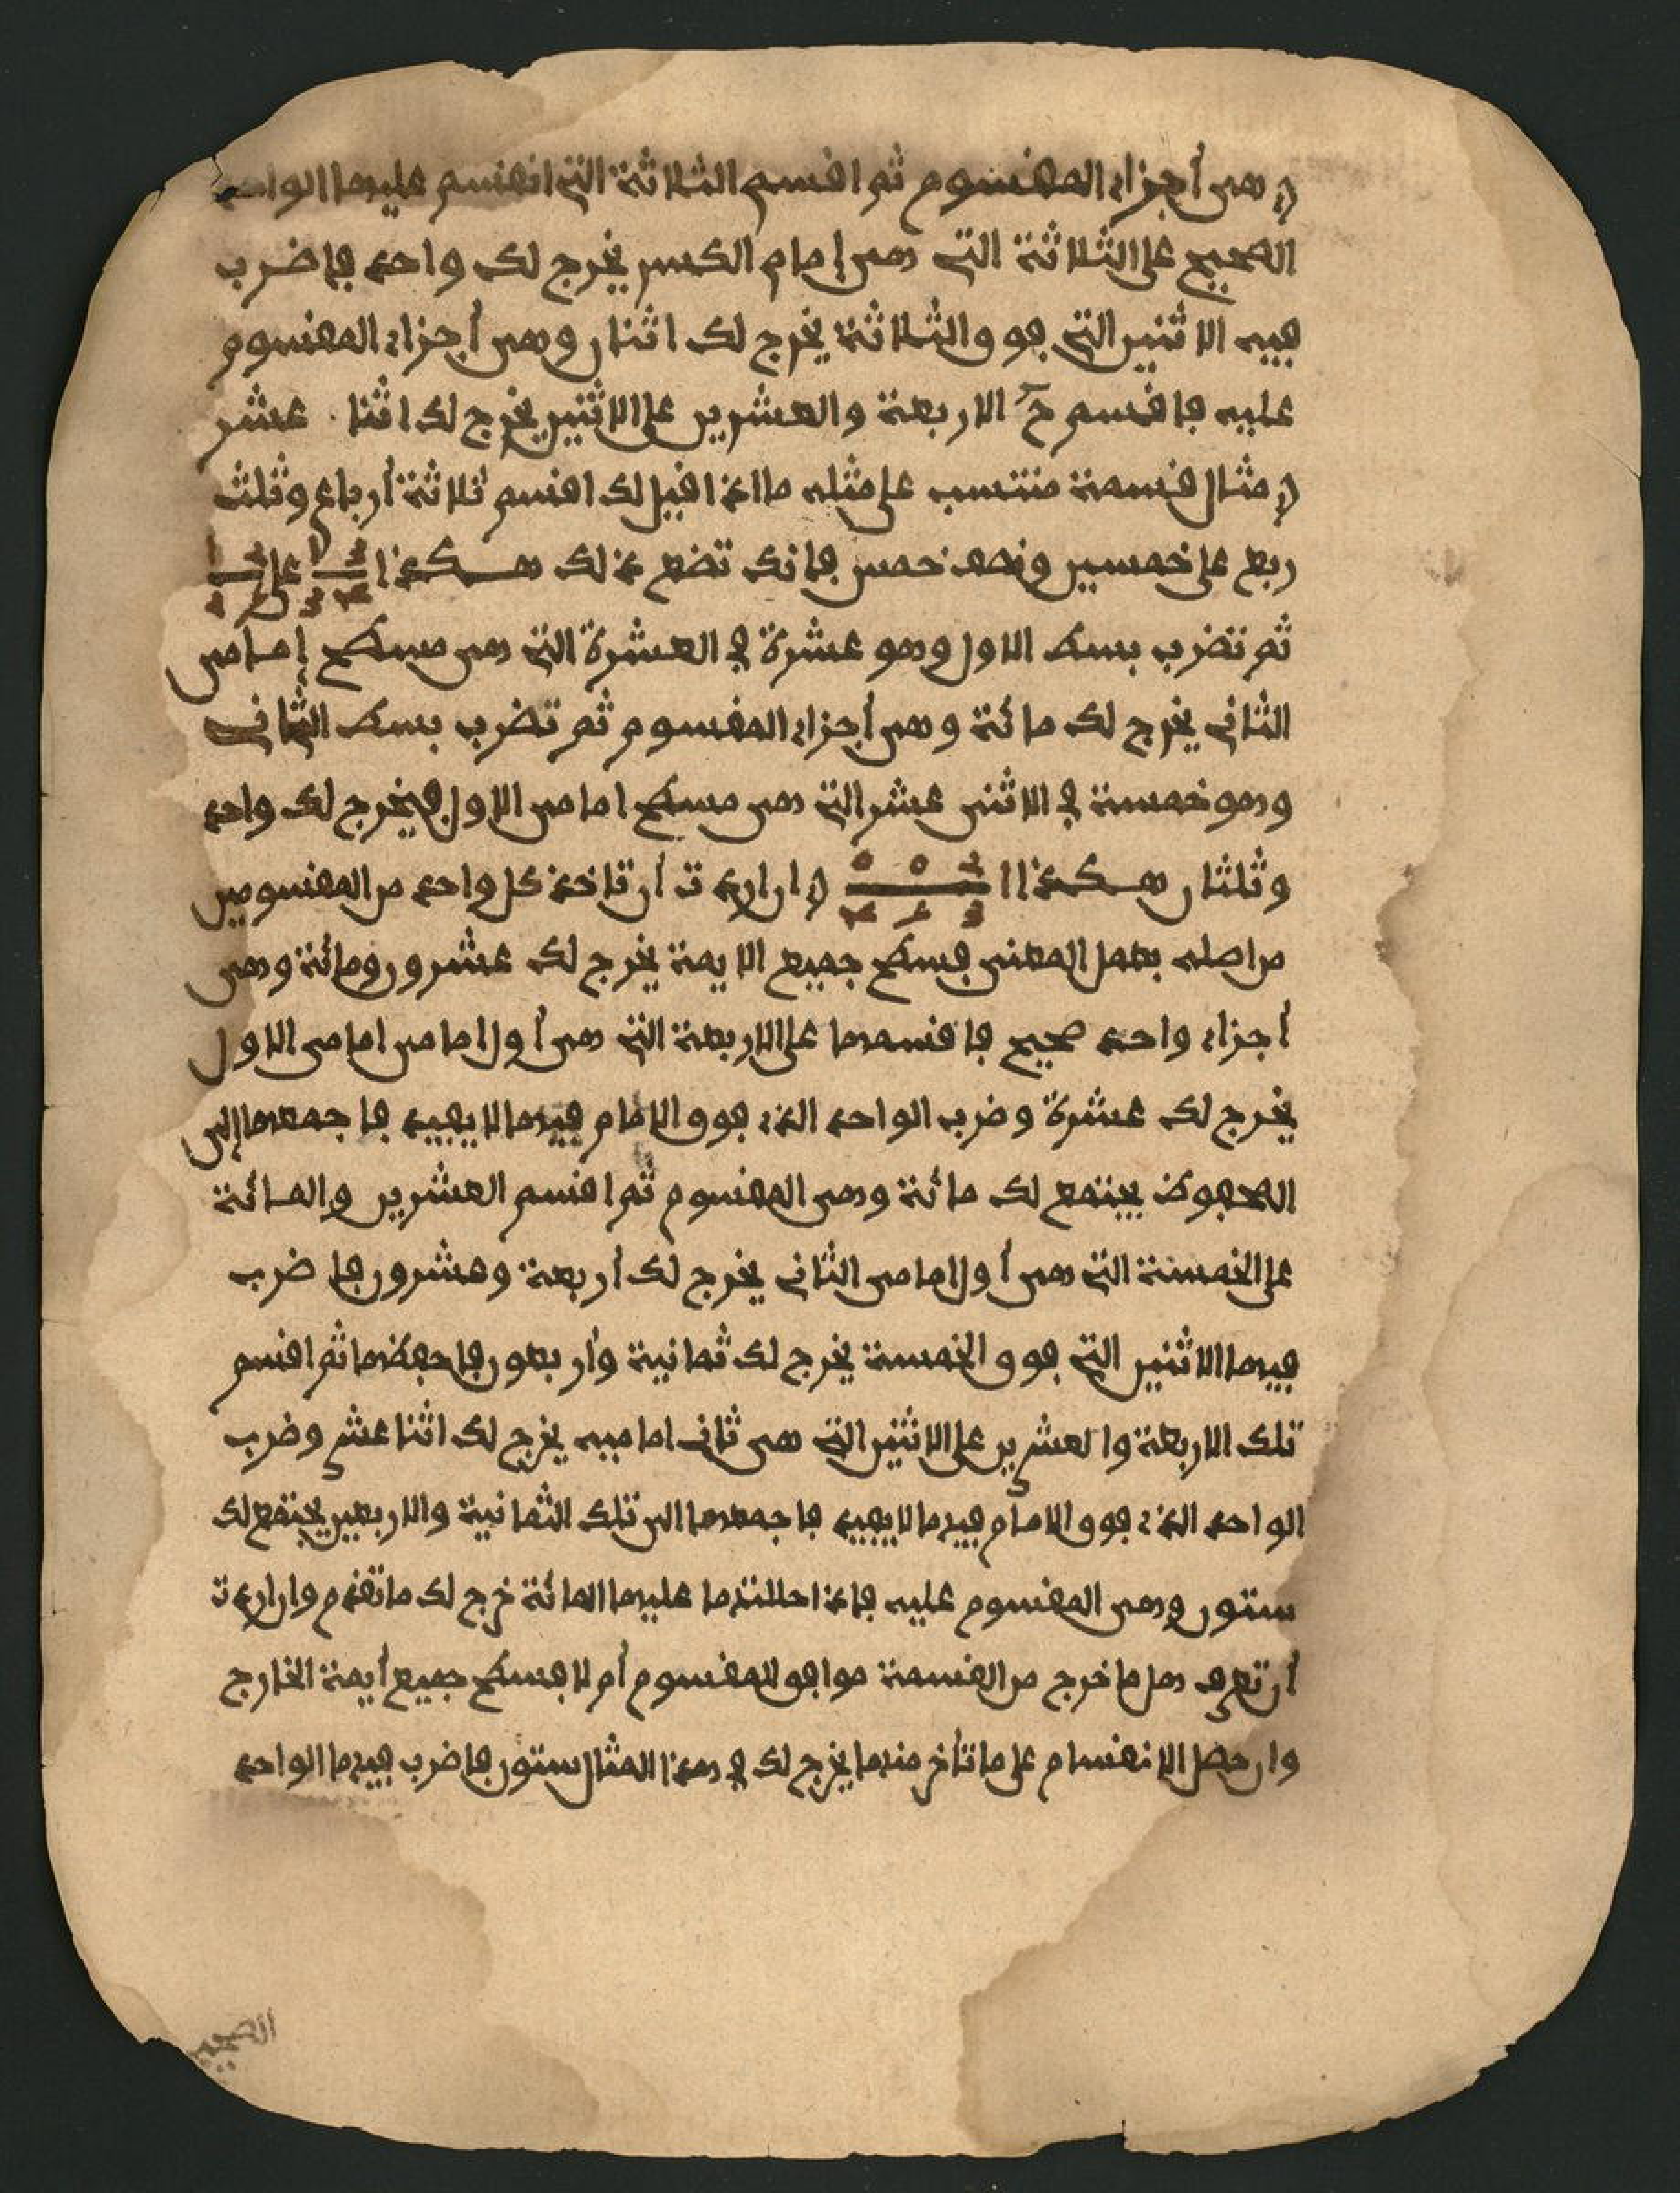 وهي أجزاء المقسوم ثم اقسم الثلاثة التي انقسم عليها الواحد
الصحيح على الثلاثة التي هي إمام الكسر يخرج لك واحد فاضرب
فيه الاثنين التي فوق الثلاثة يخرج لك اثنان وهي أجزاء المقسوم
عليه فاقسم ح الاربعة والعشرين على الاثنين يخرج لك اثنا عشر
مثال قسمة منتسب على مثله ما اذا قيل لك اقسم ثلاثة أرباع وثلث
ربع على خمسين ونصف خمس فانك تضع ذلك هكذا على
ثم تضرب بسط الاول وهو عشرة في العشرة التي هي مسطح إمامي
الثاني يخرج لك مائة وهي أجزاء المقسوم ثم تضرب بسط الثاني
وهو خمسة في الاثني عشر التي هي مسطح امامي الاول فيخرج لك واحد
وثلثان هكذا ا ان اردت أن تاخذ كل واحد من المقسومين
من اصله بعمل المعنى فسطح جميع الايمة يخرج لك عشرون ومائة وهي
أجزاء واحد صحيح فاقسمها على الاربعة التي هي أول امامين امامي الاول
يخرج لك عشرة وضرب الواحد الذي فوق الامام فيها لا يفيد فاجمعها إلى
المحفوظ يجتمع لك مائة وهي المقسوم ثم اقسم العشرين والمائة
على الخمسة التي هي أول امامي الثاني يخرج لك أربعة وعشرون فاضرب
فيها الاثنين التي فوق الخمسة يخرج لك ثمانية وأربعون فاحفظها ثم اقسم
تلك الاربعة والعشرين على الاثنين التي هي ثاني امامييه يخرج لك اثنا عشر وضرب
الواحد الذي فوق الامام فيها لا يفيد فاجمعها الى تلك الثمانية والاربعين يجتمع لك
ستون وهي المقسوم عليه فاذا حللتها عليها المائة خرج لك ما تقدم وان اردت
أن تعرف هل ما خرج من القسمة موافق للمقسوم أم لا فسطح جميع أيمة الخارج
وان حصل الانقسام على ما تأخر منها يخرج لك في هذا المثال ستون فاضرب فيها الواحد
الصحيح